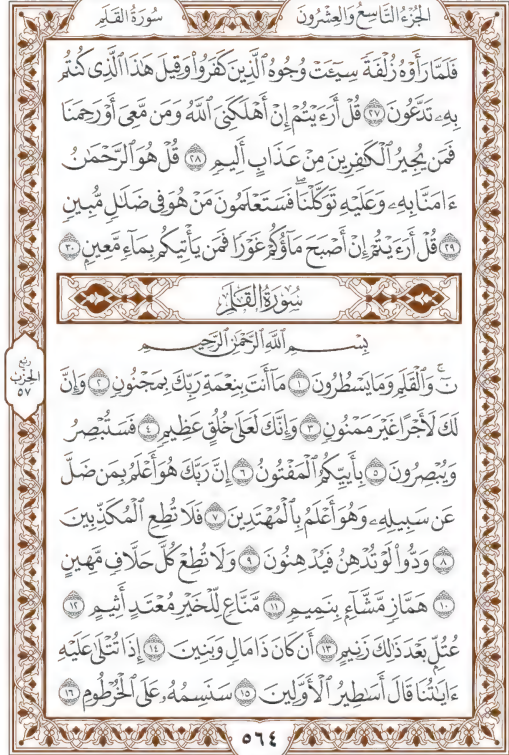 الجزء التاسع والعشرون
سورة القلم
فَلَمَّا رَأَوْهُ زُلْفَةً سِيٓـَٔتْ وُجُوهُ ٱلَّذِينَ كَفَرُوا۟ وَقِيلَ هَٰذَا ٱلَّذِى كُنتُم
بِهِۦ تَدَّعُونَ ٢٧ قُلْ أَرَءَيْتُمْ إِنْ أَهْلَكَنِىَ ٱللَّهُ وَمَن مَّعِىَ أَوْ رَحِمَنَا
فَمَن يُجِيرُ ٱلْكَٰفِرِينَ مِنْ عَذَابٍ أَلِيمٍ ٢٨ قُلْ هُوَ ٱلرَّحْمَٰنُ
ءَامَنَّا بِهِۦ وَعَلَيْهِ تَوَكَّلْنَا ۖ فَسَتَعْلَمُونَ مَنْ هُوَ فِى ضَلَٰلٍ مُّبِينٍ
٢٩ قُلْ أَرَءَيْتُمْ إِنْ أَصْبَحَ مَآؤُكُمْ غَوْرًا فَمَن يَأْتِيكُم بِمَآءٍ مَّعِينٍۭ ٣٠
سُورَةُ القَلَمِ
بِسْمِ ٱللَّهِ ٱلرَّحْمَٰنِ ٱلرَّحِيمِ
نٓ ۚ وَٱلْقَلَمِ وَمَا يَسْطُرُونَ ١ مَآ أَنتَ بِنِعْمَةِ رَبِّكَ بِمَجْنُونٍ ٢ وَإِنَّ
لَكَ لَأَجْرًا غَيْرَ مَمْنُونٍ ٣ وَإِنَّكَ لَعَلَىٰ خُلُقٍ عَظِيمٍ ٤ فَسَتُبْصِرُ
وَيُبْصِرُونَ ٥ بِأَييِّكُمُ ٱلْمَفْتُونُ ٦ إِنَّ رَبَّكَ هُوَ أَعْلَمُ بِمَن ضَلَّ
عَن سَبِيلِهِۦ وَهُوَ أَعْلَمُ بِٱلْمُهْتَدِينَ ٧ فَلَا تُطِعِ ٱلْمُكَذِّبِينَ
٨ وَدُّوا۟ لَوْ تُدْهِنُ فَيُدْهِنُونَ ٩ وَلَا تُطِعْ كُلَّ حَلَّافٍ مَّهِينٍ
١٠ هَمَّازٍ مَّشَّآءٍۭ بِنَمِيمٍ ١١ مَّنَّاعٍ لِّلْخَيْرِ مُعْتَدٍ أَثِيمٍ ١٢
عُتُلٍّۭ بَعْدَ ذَٰلِكَ زَنِيمٍ ١٣ أَن كَانَ ذَا مَالٍ وَبَنِينَ ١٤ إِذَا تُتْلَىٰ عَلَيْهِ
ءَايَٰتُنَا قَالَ أَسَٰطِيرُ ٱلْأَوَّلِينَ ١٥ سَنَسِمُهُۥ عَلَى ٱلْخُرْطُومِ ١٦
ربع
الحزب
٥٧
٥٦٤